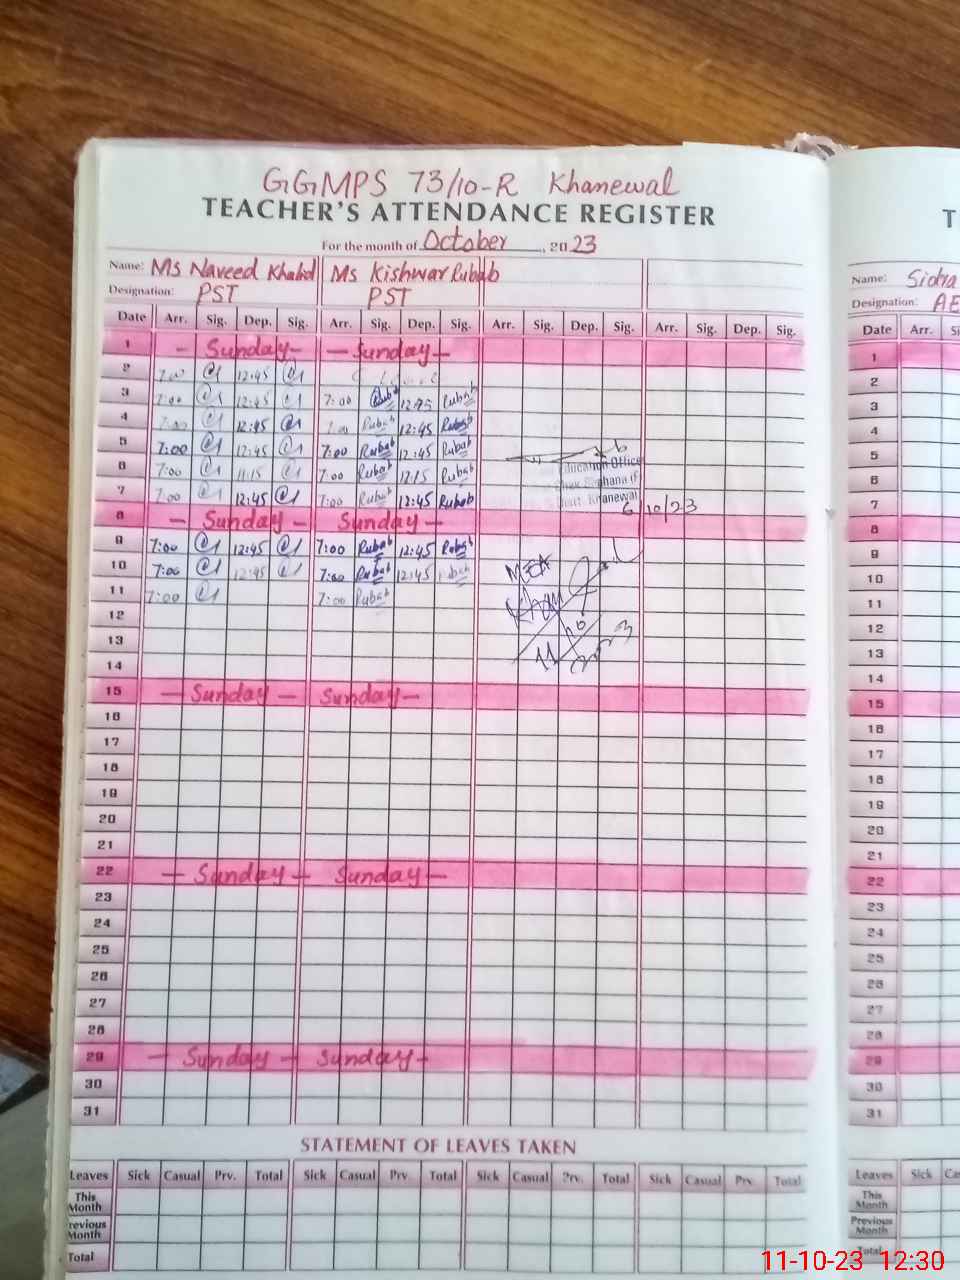 GGMPS 73/10-R Khanewal
TEACHER'S ATTENDANCE REGISTER
For the month of October, 2023
Name: Ms Naveed Khalid Ms Kishwar Rubab
Designation: PST PST
Date Arr. Sig. Dep. Sig. Arr. Sig. Dep. Sig. Arr. Sig. Dep. Sig. Arr. Sig. Dep. Sig.
1 - Sunday - - Sunday -
2 7:00 12:45
3 7:00 12:45 7:00 Rubab 12:45 Rubab
4 7:00 12:45 7:00 Rubab 12:45 Rubab
5 7:00 12:45 7:00 Rubab 12:45 Rubab
6 7:00 11:15 7:00 Rubab 12:15 Rubab
7 7:00 12:45 7:00 Rubab 12:45 Rubab
Education Office
Khanewal
6/10/23
8 - Sunday - Sunday -
9 7:00 12:45 7:00 Rubab 12:45 Rubab
10 7:00 12:45 7:00 Rubab 12:45 Rubab
11 7:00 7:00 Rubab
MEA
11/10/2023
12
13
14
15 - Sunday - Sunday -
16
17
18
19
20
21
22 - Sunday - Sunday -
23
24
25
26
27
28
29 - Sunday - Sunday -
30
31
STATEMENT OF LEAVES TAKEN
Leaves Sick Casual Prv. Total Sick Casual Prv. Total Sick Casual Prv. Total Sick Casual Prv. Total
This Month
Previous Month
Total
Name: Sidra
Designation: AE
Date Arr.
1
2
3
4
5
6
7
8
9
10
11
12
13
14
15
16
17
18
19
20
21
22
23
24
25
26
27
28
29
30
31
Leaves Sick
This Month
Previous Month
Total
11-10-23 12:30